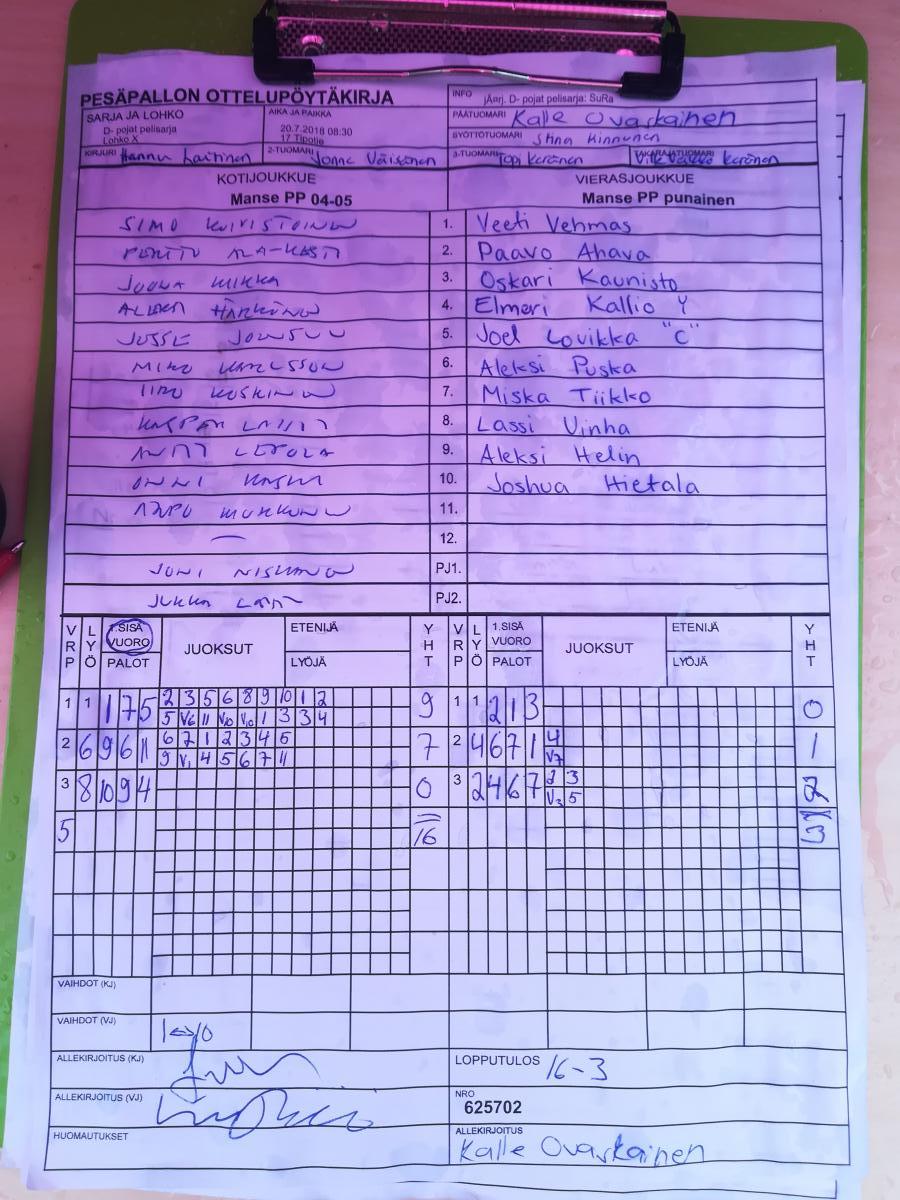 PESÄPALLON OTTELUPÖYTÄKIRJA
INFO jÄarj. D- pojat pelisarja: SuRa
PÄÄTUOMARI Kalle Ovaskainen
SARJA JA LOHKO
D- pojat pelisarja
Lohko X
AIKA JA PAIKKA
20.7.2018 08:30
17 Tipotie
SYÖTTÖTUOMARI Stina Kinnunen
KIRJURI Hannu Laitinen
2-TUOMARI Jonne Väisänen
3-TUOMARI Topi Karänen
TAKARAJATUOMARI
KOTIJOUKKUE
Manse PP 04-05
VIERASJOUKKUE
Manse PP punainen
SIMO 1. Veeti Vehmas
2. Paavo Ahava
MIKKA 3. Oskari Kaunisto
HÄRKÖNEN 4. Elmeri Kallio Y
JUSSE 5. Joel Lovikka "C"
MIKO KARLSSON 6. Aleksi Puska
IIRO KOSKINEN 7. Miska Tiikko
8. Lassi Vinha
LEPOLA 9. Aleksi Helin
ONNI 10. Joshua Hietala
11.
12.
JONI PJ1.
JUKKA PJ2.
VRP LYÖ 1.SISÄ VUORO PALOT JUOKSUT ETENIJÄ LYÖJÄ YHT VRP LYÖ 1.SISÄ VUORO PALOT JUOKSUT ETENIJÄ LYÖJÄ YHT
1 1 1 7 5 2 3 5 6 8 9 10 1 2 9 1 1 2 1 3 0
5 V6 11 V10 V10 1 3 3 4
2 6 9 6 11 6 7 1 2 3 4 5 7 2 4 6 7 1 4 1
9 V1 4 5 6 7 11 V7
3 8 10 9 4 0 3 2 4 6 7 2 3 2
V3 5
5 16 3
VAIHDOT (KJ)
VAIHDOT (VJ) 1↔10
ALLEKIRJOITUS (KJ)
LOPPUTULOS 16-3
ALLEKIRJOITUS (VJ)
NRO
625702
HUOMAUTUKSET
ALLEKIRJOITUS
Kalle Ovaskainen